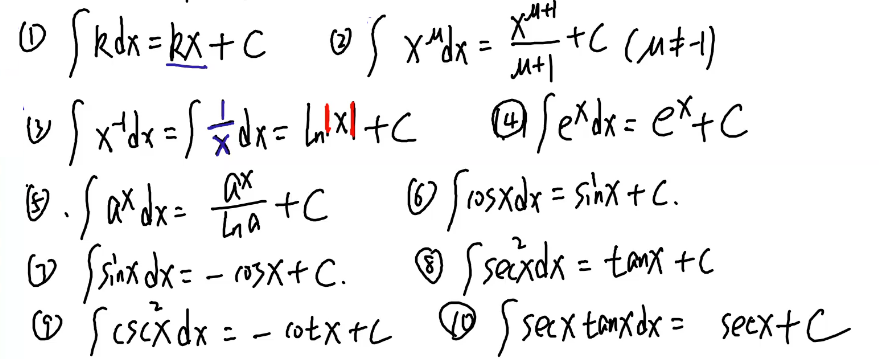 ① ∫kdx = kx + C ② ∫x^μdx = x^(μ+1)/(μ+1) + C (μ≠-1)
③ ∫x⁻¹dx = ∫1/x dx = ln|x| + C ④ ∫eˣdx = eˣ + C
⑤. ∫aˣdx = aˣ/ln a + C ⑥ ∫cosxdx = sinx + C.
⑦ ∫sinxdx = - cosx + C. ⑧ ∫sec²xdx = tanx + C
⑨ ∫csc²xdx = - cotx + C ⑩ ∫secxtanxdx = secx + C